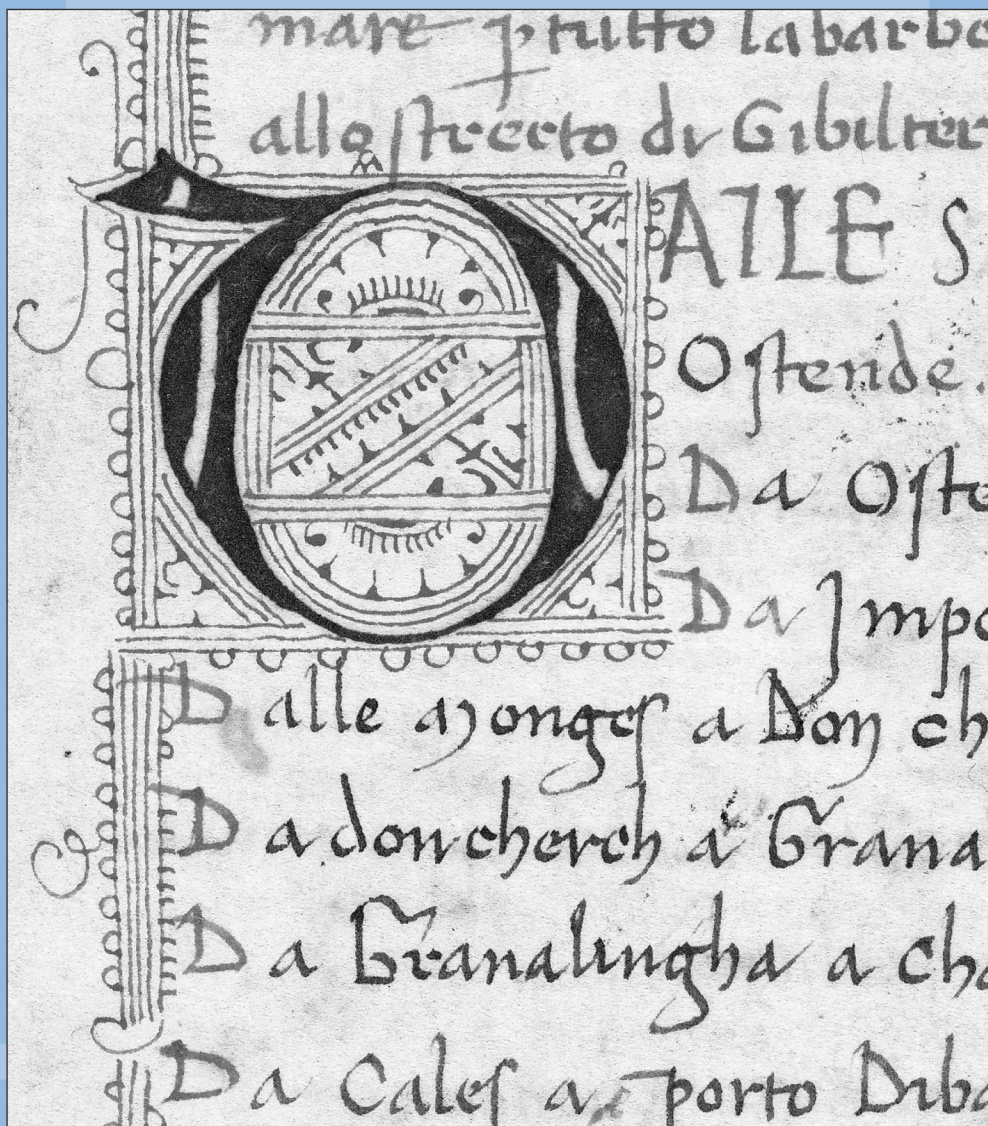 mare ꝑ tutto la barbe
allo streecto di Gibilter
DALLE S
Ostende.
Da Oste
Da Jmpo
Dalle monges a Don ch
Da doncherch a Grana
Da Granalingha a cha
Da Cales a porto Diba